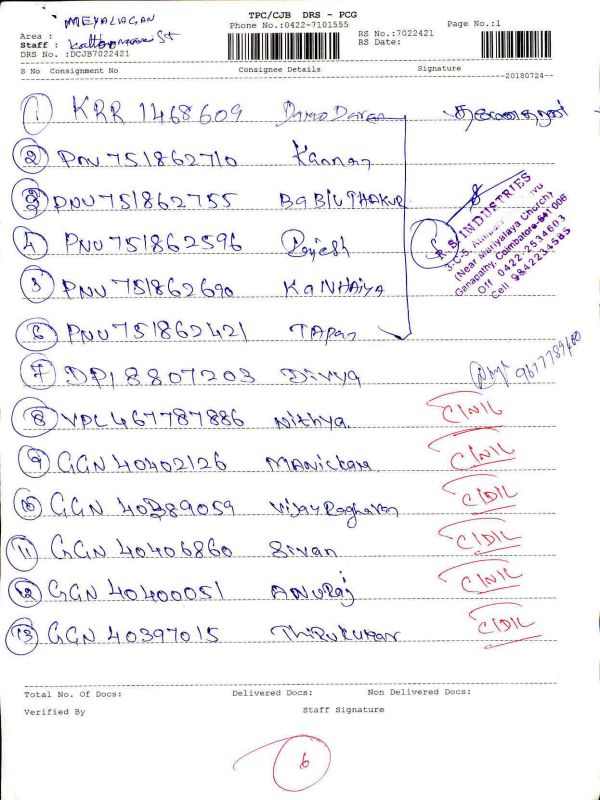 TPC/CJB DRS - PCG
MEYALAGAN
Phone No.:0422-7101555
Page No.:1
Area :
RS No.:7022421
Staff :
RS Date:
DRS No. :DCJB7022421
S No Consignment No Consignee Details Signature
20180724
1 KRR 1468609 Damo Daran
2 PNU 751862710 Kannan
3 PNU 751862755 BABIUTHAKUR
4 PNU 751862596 Rajesh
5 PNU 751862690 KaNHAiya
6 PNU 751862421 TAPan
R.S. INDUSTRIES
(Near Mariyalaya Church)
Ganapathy, Coimbatore-641 006
Off 0422-2534603
Cell 9842234585
7 DPI 8807203 Divya 9677789400
8 VPL 467787886 Nithya CINIL
9 GGN 40402126 MANickam CINIL
10 GGN 40389059 Vijay Raghavan CIDIL
11 GGN 40406860 Sivan CIDIL
12 GGN 40400051 ANURaj CINIL
13 GGN 40397015 THIRUKUMAR CIDIL
Total No. Of Docs: Delivered Docs: Non Delivered Docs:
Verified By Staff Signature
6